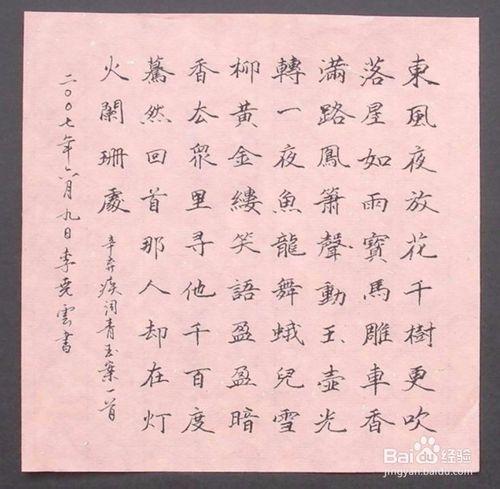 東風夜放花千樹更吹
落星如雨寶馬雕車香
滿路鳳簫聲動玉壺光
轉一夜魚龍舞蛾兒雪
柳黃金縷笑語盈盈暗
香去眾里寻他千百度
驀然回首那人却在灯
火闌珊處
辛弃疾词青玉案一首
二〇〇七年六月九日李尭雲書
Baidu经验
jingyan.baidu.com